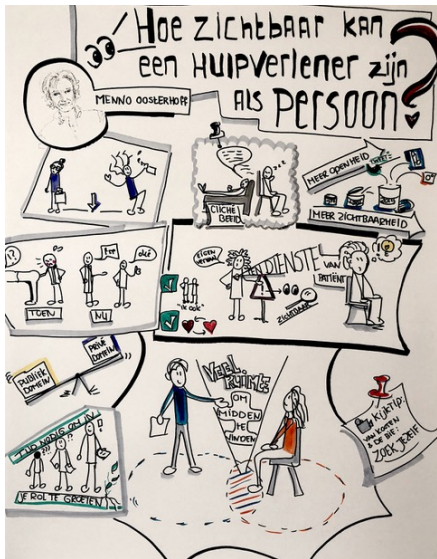 Hoe zichtbaar kan
een Hulpverlener zijn
als persoon?
Menno Oosterhoff
Cliché
beeld
Meer openheid
Meer zichtbaarheid
Toen
Nu
Eigen
verhaal
"ik ook"
Ten dienste van
patiënt
zichtbaar
Publiek
domein
Privé
domein
Veel
ruimte
om
midden
te
vinden
Kijktip:
van Koten
& de Bie:
Zoek jezelf
Tijd nodig om in
je rol te groeien